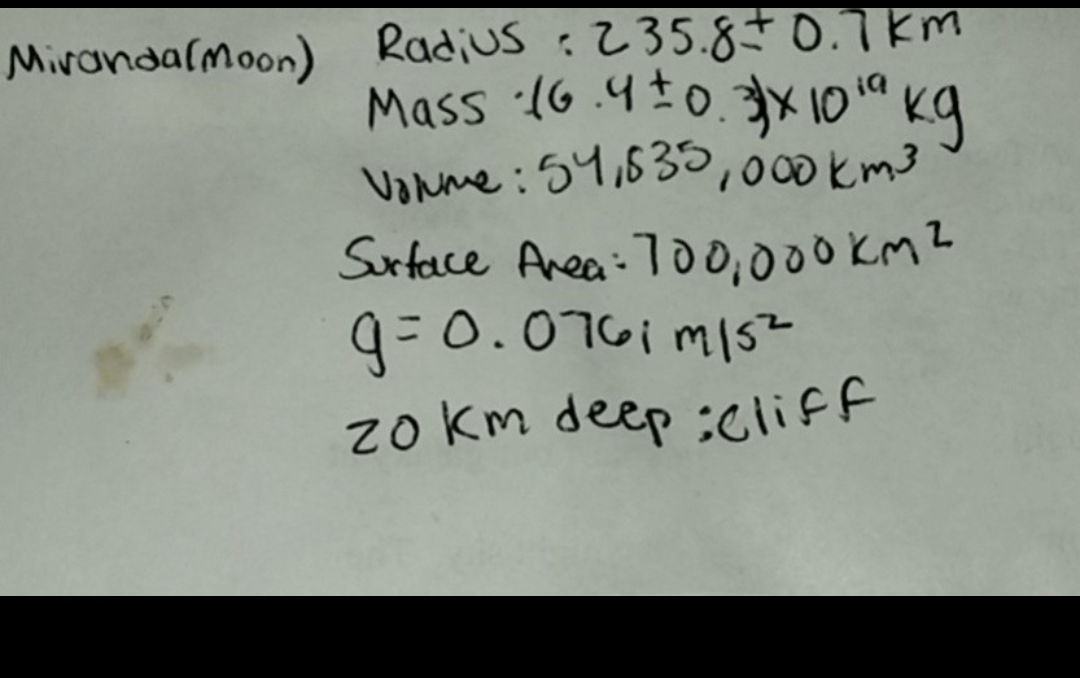 Miranda(Moon) Radius : 235.8± 0.7 km
Mass :(6.4 ± 0.3)x 10¹⁹ kg
Volume : 54,835,000 km³
Surface Area: 700,000 km²
g = 0.0761 m/s²
20 km deep :cliff